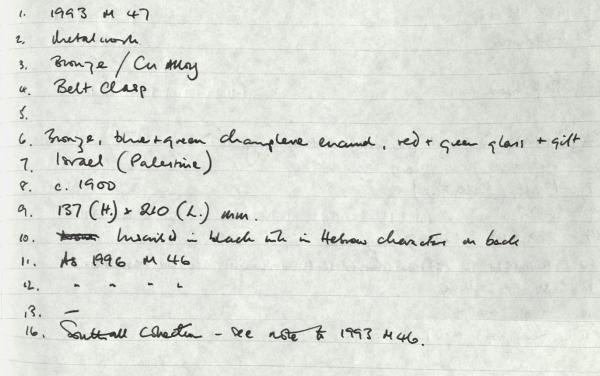 1. 1993 M 47
2. Metalwork
3. Bronze / Cu Alloy
4. Belt Clasp
5.
6. Bronze, blue + green champleve enamel, red + green glass + gilt
7. Israel (Palestine)
8. c. 1900
9. 137 (H.) x 210 (L.) mm.
10. Inscribed in black ink in Hebrew characters on back
11. As 1996 M 46
12. " " " "
13. —
16. Southall Collection - see note to 1993 M46.